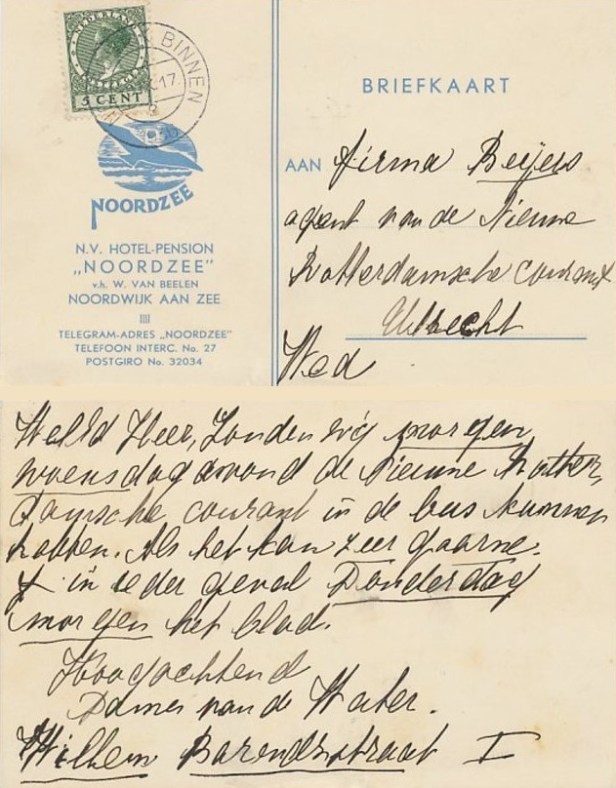 NEDERLAND
5 CENT
BINNEN
17.
NOORDZEE
N.V. HOTEL-PENSION
„NOORDZEE”
v.h. W. VAN BEELEN
NOORDWIJK AAN ZEE
TELEGRAM-ADRES „NOORDZEE”
TELEFOON INTERC. No. 27
POSTGIRO No. 32034
BRIEFKAART
AAN firma Beijers
agent van de Nieuwe
Rotterdamsche courant
Utrecht
Ned
WelEd Heer, Zouden wij morgen
woensdag avond de Nieuwe Rotter
damsche courant in de bus kunnen
hebben. Als het kan zeer gaarne.
in ieder geval Donderdag
morgen het blad.
Hoogachtend
Dames van de Water.
Willem Barendsstraat I